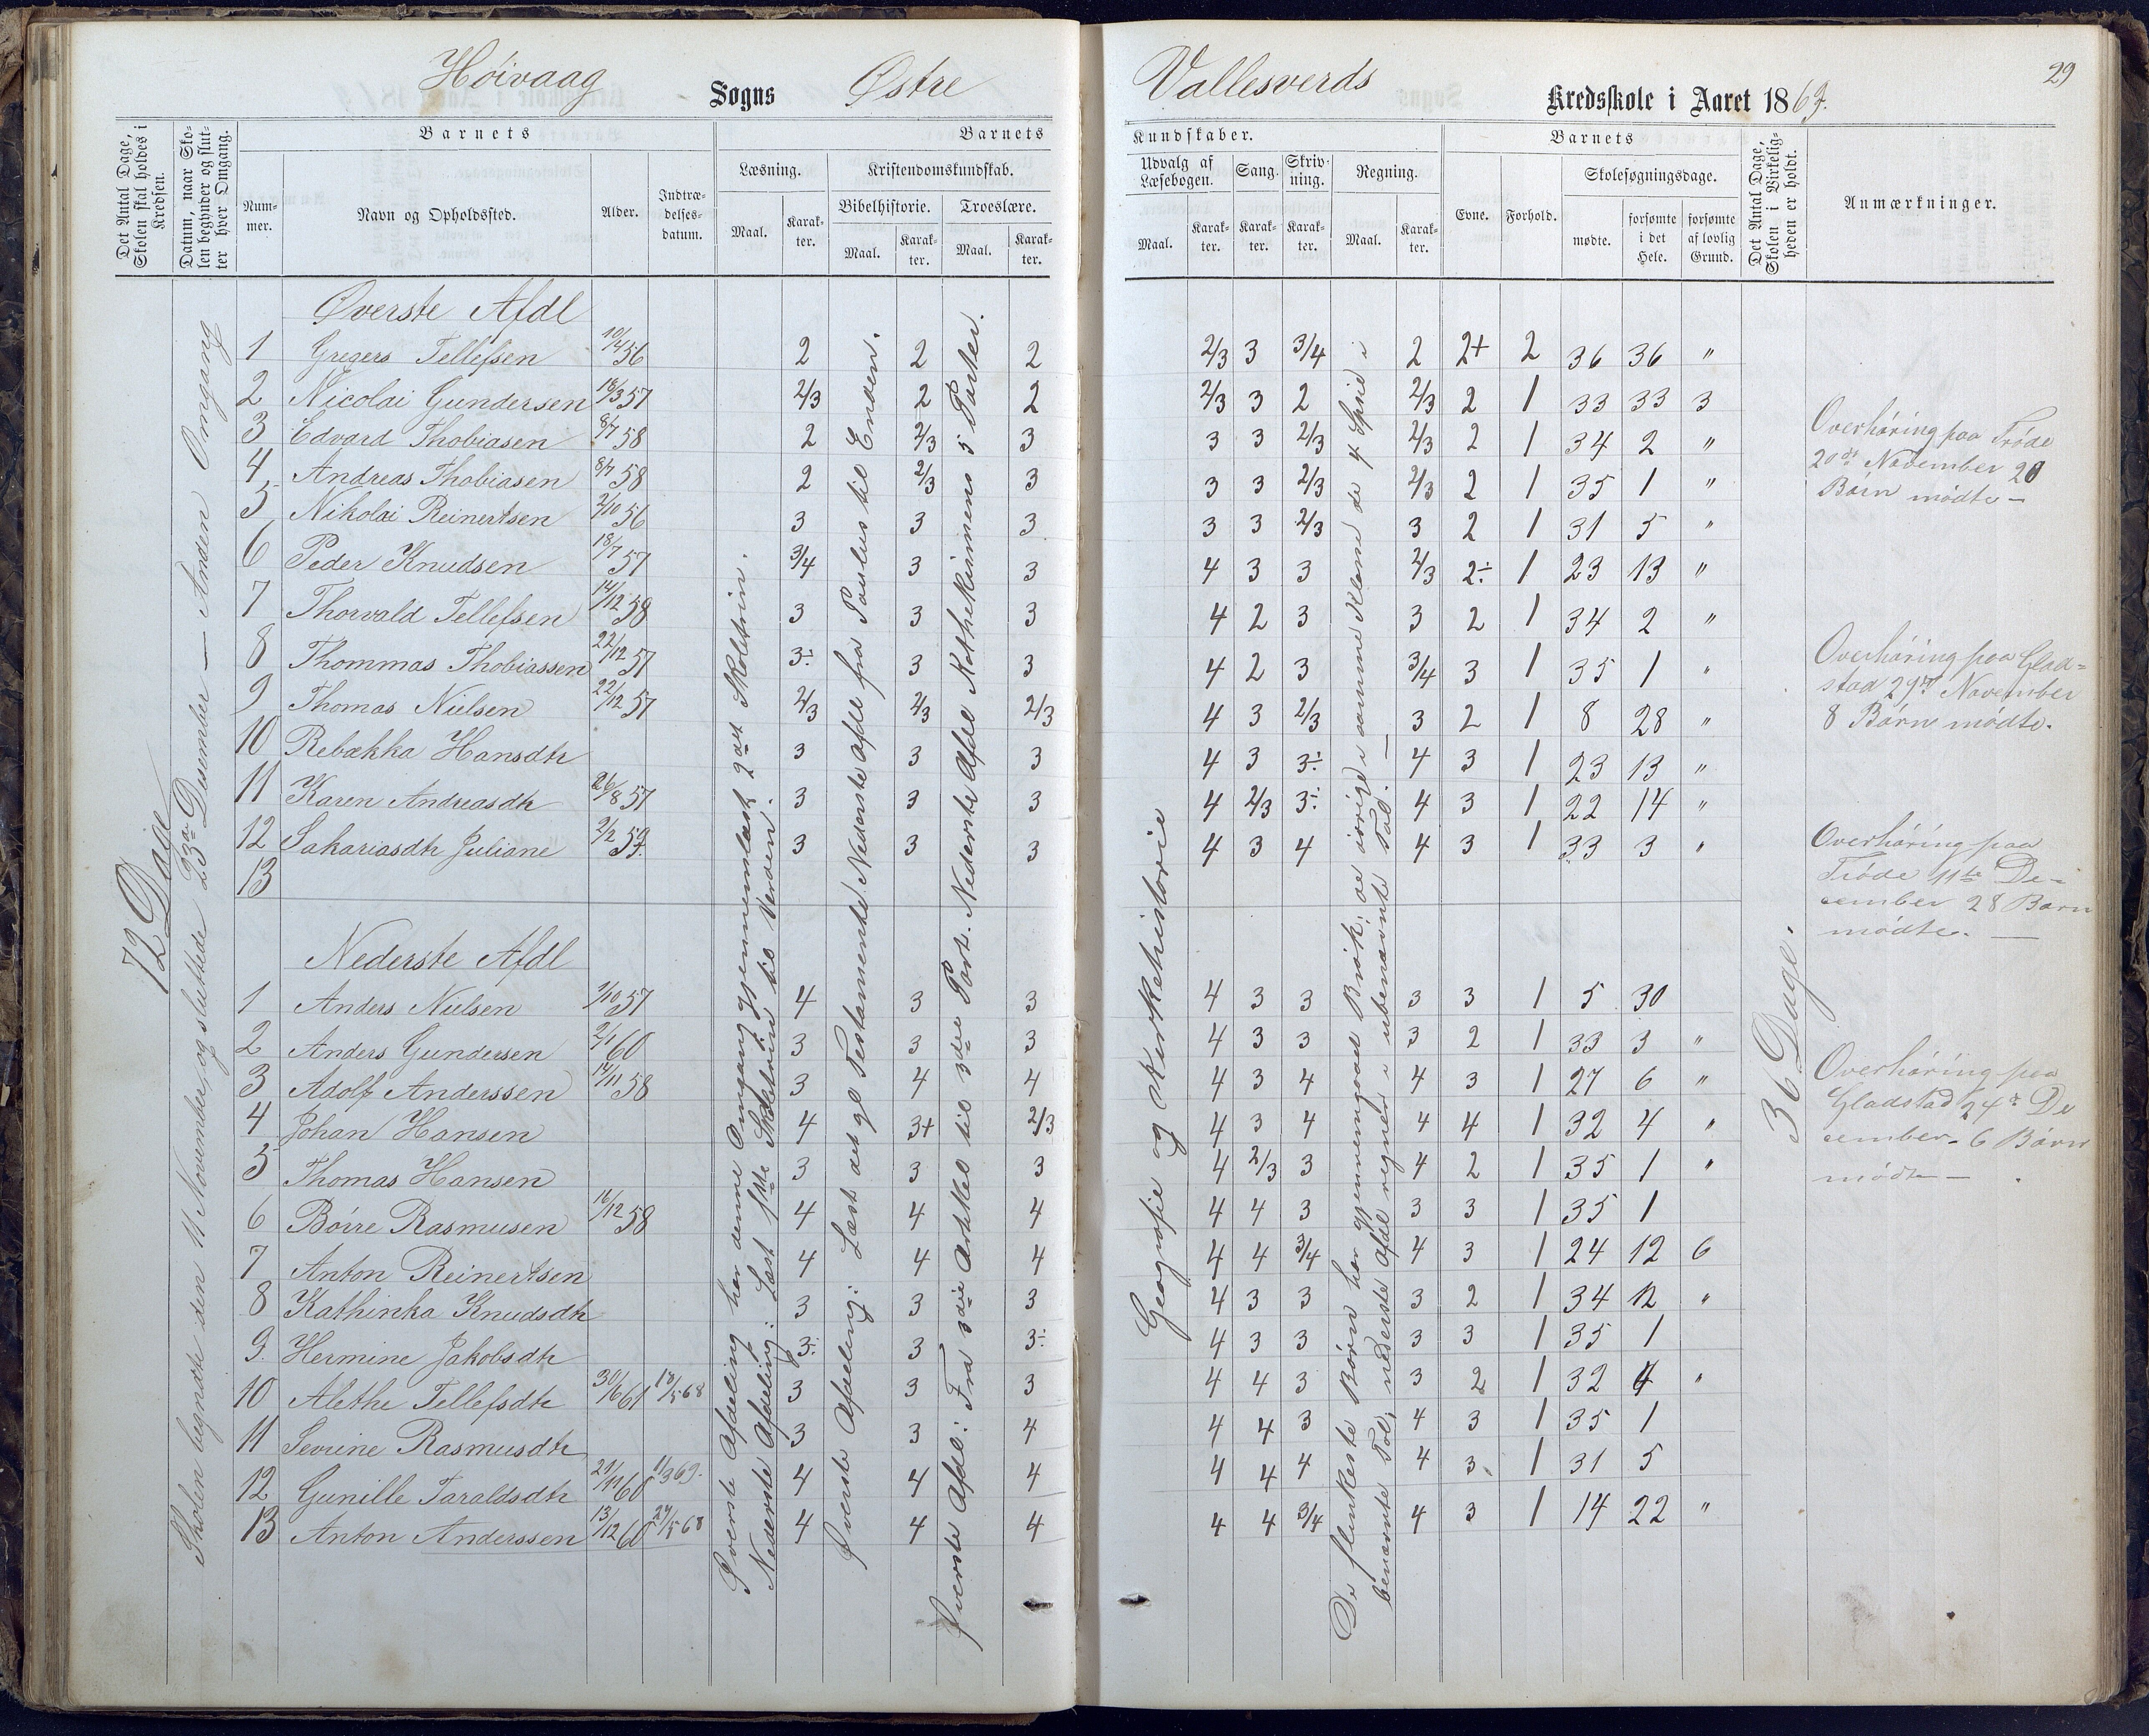 Høivaag Sogns Østre Vallesverds Kredsskole i Aaret 1869.
29
Det Antal Dage, Skolen skal holdes i Kredsen.
Datum, naar Skolen begynder og slutter hver Omgang.
Barnets
Nummer.
Navn og Opholdssted.
Alder.
Indtrædelsesdatum.
Barnets Kundskaber.
Læsning. Maal. Karakter.
Kristendomskundskab.
Bibelhistorie. Maal. Karakter.
Troeslære. Maal. Karakter.
Udvalg af Læsebogen. Maal. Karakter.
Sang. Karakter.
Skrivning. Karakter.
Regning. Maal. Karakter.
Barnets
Evne. Forhold.
Skolesøgningsdage.
mødte. forsømte i det Hele. forsømte af lovlig Grund.
Det Antal Dage, Skolen i Virkeligheden er holdt.
Anmærkninger.
72 Dage
Skolen begyndte den 11 November, og sluttede 23de Desember — Anden Omgang
Øverste Afdl
1 Gregers Tellefsen 10/4 56 2 2 2 2/3 3 3/4 2 2+ 2 36 36 "
2 Nicolai Gundersen 18/3 57 2/3 2 2 2/3 3 2 2/3 2 1 33 33 3
3 Edvard Thobiasen 8/7 58 2 2/3 3 3 3 2/3 2/3 2 1 34 2 "
4 Andreas Thobiasen 8/7 58 2 2/3 3 3 3 2/3 2/3 2 1 35 1 "
5 Nikolai Reinertsen 2/10 56 3 3 3 3 3 2/3 3 2 1 31 5 "
6 Peder Knudsen 18/7 57 3/4 3 3 4 3 3 2/3 2÷ 1 23 13 "
7 Thorvald Tellefsen 14/12 58 3 3 3 4 2 3 3 2 1 34 2 "
8 Thommas Thobiassen 22/12 57 3÷ 3 3 4 2 3 3/4 3 1 35 1 "
9 Thomas Nielsen 22/12 57 2/3 2/3 2/3 4 3 2/3 3 2 1 8 28 "
10 Rebækka Hansdtr 3 3 3 4 3 3÷ 4 3 1 23 13 "
11 Karen Andreasdtr 26/8 57 3 3 3 4 2/3 3÷ 4 3 1 22 14 "
12 Sakariasdtr Juliane 2/2 59 3 3 3 4 3 4 4 3 1 33 3 "
13
Nederste Afdl
1 Anders Nielsen 1/10 57 4 3 3 4 3 3 3 3 1 5 30
2 Anders Gundersen 2/1 60 3 3 3 4 3 3 3 2 1 33 3 "
3 Adolf Anderssen 14/11 58 3 4 4 4 3 4 4 3 1 27 6 "
4 Johan Hansen 4 3+ 2/3 4 3 4 4 4 1 32 4 "
5 Thomas Hansen 3 3 3 4 2/3 3 4 2 1 35 1 "
6 Börre Rasmusen 16/12 58 4 4 4 4 4 3 3 3 1 35 1
7 Anton Reinertsen 4 4 4 4 4 3/4 4 3 1 24 12 6
8 Kathinka Knudsdtr 3 3 3 4 3 3 3 2 1 34 12 "
9. Hermine Jakobsdtr 3÷ 3 3÷ 4 3 3 3 3 1 35 1
10 Alethe Tellefsdtr 30/6 61 18/5 68 3 3 3 4 4 3 3 2 1 32 4 "
11 Sevrine Rasmusdtr 3 3 4 4 4 3 4 3 1 35 1
12 Gunille Taraldsdtr 21/11 60 11/3 69. 4 4 4 4 4 4 4 3 1 31 5
13 Anton Anderssen 13/12 60 24/5 68 4 4 4 4 4 3/4 4 3 1 14 22 "
Øverste Afdeling har denne Omgang gjennemlæst 2det Skoletrin.
Nederste Afdeling: Læst 1ste Skoletrin til Verden.
Øverste Afdeling: Læst det gl Testamente. Nederste Afdl fra Paulus til Enden.
Øverste Afdl: Fra 3die Artikel til 3die Part. Nederste Afdl Kathekismens 5 Parter.
Geografie og Kirkehistorie
De flinkeste Børn har gjennemgaaet Brøk; de øvrige i samme Klasse de 4 Spesi i
benævnte Tal; nederste Afdl regner i ubenævnte Tal. —
36 Dage.
Overhøring paa Trøde
20de November 20
Børn mødte —
Overhøring paa Glad-
stad 29de November
8 Børn mødte.
Overhøring paa
Trøde 11te De-
cember 28 Børn
mødte. —
Overhøring paa
Gladstad 24de De
cember. 6 Børn
mødte —